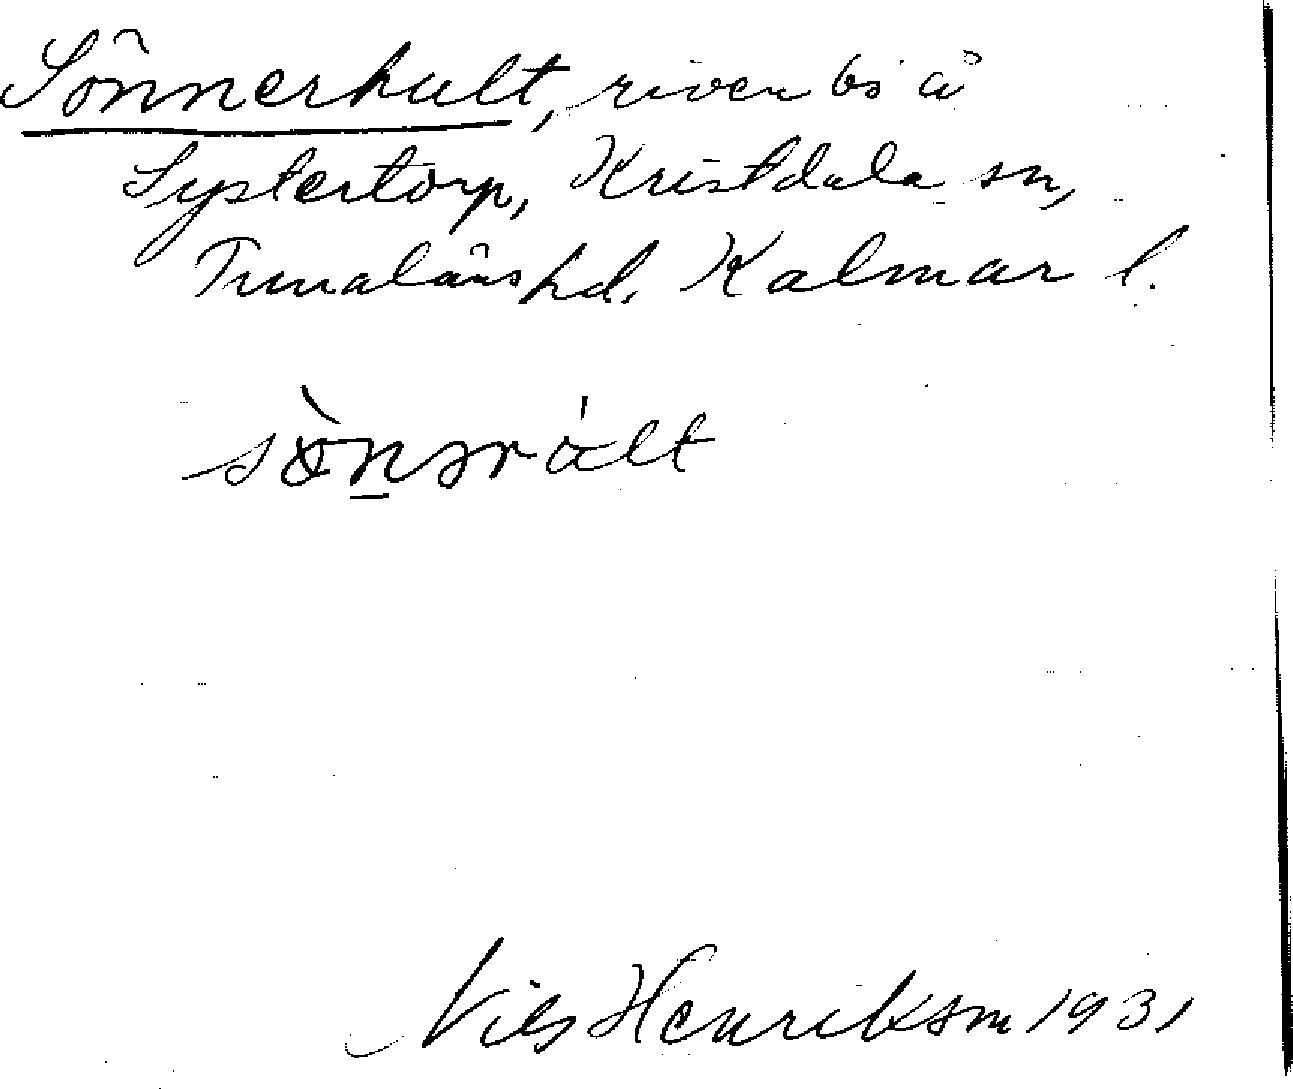 Sönnerhult, riven bs å
Systertorp, Kristdala sn,
Tunaläns hd. Kalmar l.
Nils Henrikson 1931